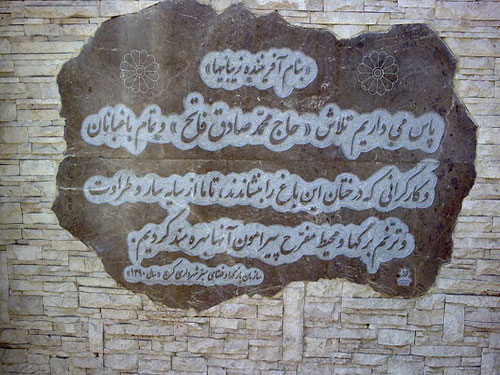 «بنام آفریننده زیباییها»
پاس می داریم تلاش «حاج محمد صادق فاتح» و تمام باغبانان
و کارگرانی که درختان این باغ را بنشاندند، تا ما از سایه سار و طراوت
و ترنم برگها و محیط مفرح پیرامون آنها بهره مند گردیم.
سازمان پارکها و فضای سبز شهرداری کرج «سال ۱۳۹۰»